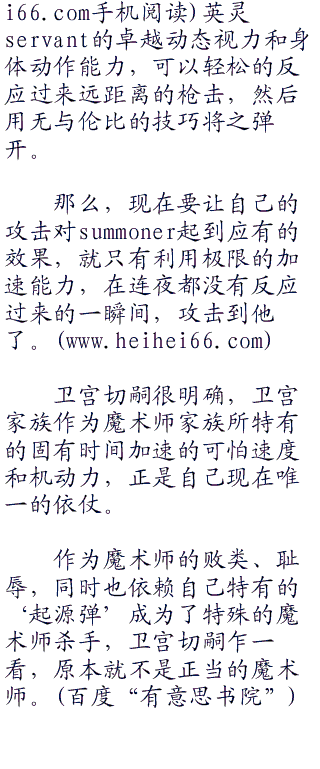 i66.com手机阅读)英灵
servant的卓越动态视力和身
体动作能力，可以轻松的反
应过来远距离的枪击，然后
用无与伦比的技巧将之弹
开。
那么，现在要让自己的
攻击对summoner起到应有的
效果，就只有利用极限的加
速能力，在连夜都没有反应
过来的一瞬间，攻击到他
了。(www.heihei66.com)
卫宫切嗣很明确，卫宫
家族作为魔术师家族所特有
的固有时间加速的可怕速度
和机动力，正是自己现在唯
一的依仗。
作为魔术师的败类、耻
辱，同时也依赖自己特有的
‘起源弹’成为了特殊的魔
术师杀手，卫宫切嗣乍一
看，原本就不是正当的魔术
师。(百度“有意思书院”)